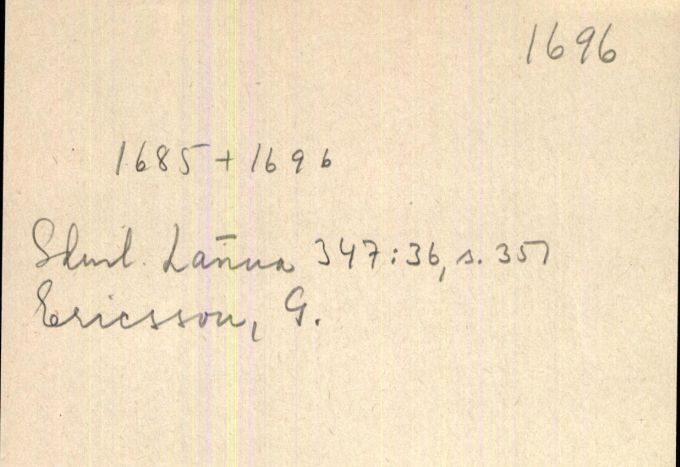 1696
1685 + 1696
Lännа 347:36, s. 357
Ericsson, G.